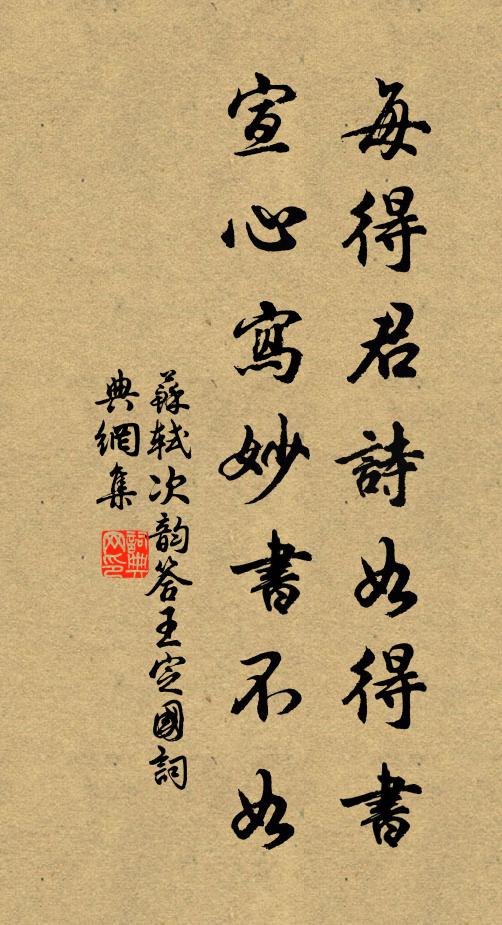 每得君詩如得書
宣心寫妙書不如
蘇軾次韵答王定國詞
典網集
詞典網印